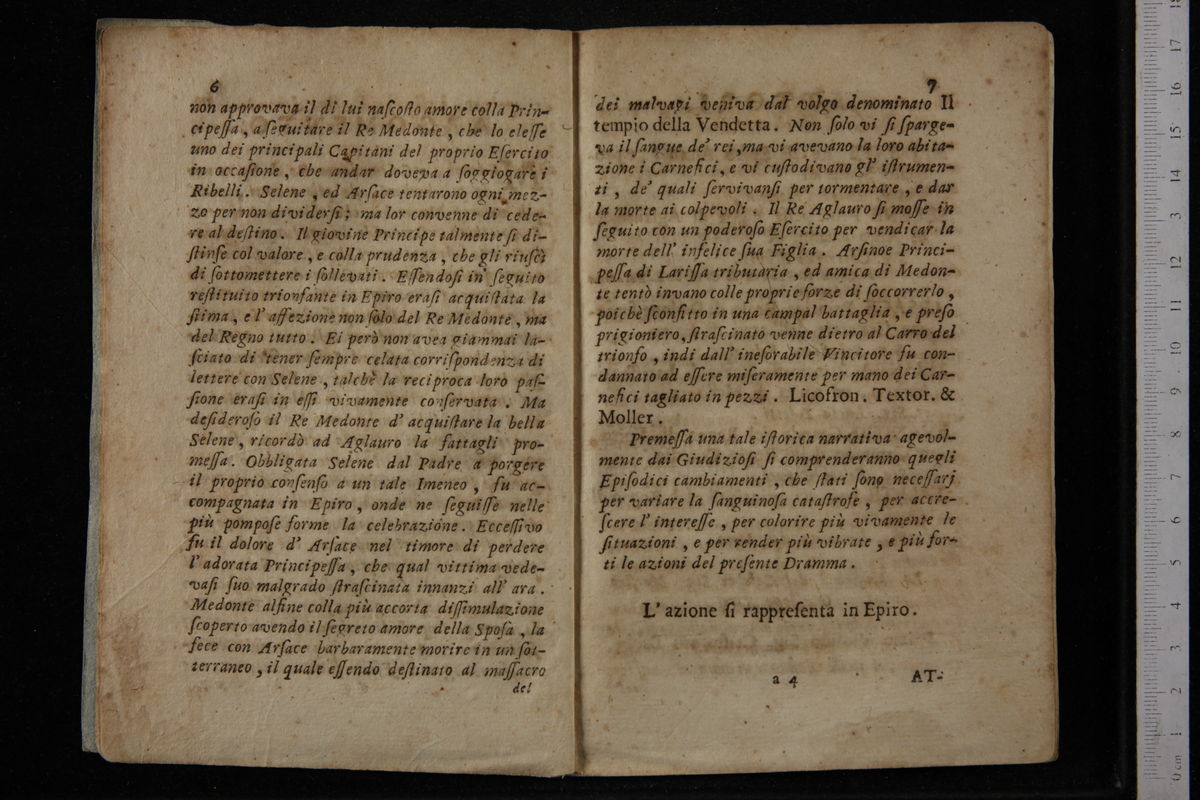 6
non approvava il di lui naſcoſto amore colla Prin-
cipeſſa, a ſeguitare il Re Medonte, che lo eleſſe
uno dei principali Capitani del proprio Eſercito
in occaſione, che andar doveva a ſoggiogare i
Ribelli. Selene, ed Arſace tentarono ogni mez-
zo per non dividerſi; ma lor convenne di cede-
re al deſtino. Il giovine Principe talmente ſi di-
ſtinſe col valore, e colla prudenza, che gli riuſcì
di ſottomettere i ſollevati. Eſſendoſi in ſeguito
reſtituito trionfante in Epiro eraſi acquiſtata la
ſtima, e l' affezione non ſolo del Re Medonte, ma
del Regno tutto. Ei però non avea giammai la-
ſciato di tener ſempre celata corriſpondenza di
lettere con Selene, talchè la reciproca loro paſ-
ſione eraſi in eſſi vivamente conſervata. Ma
deſideroſo il Re Medonte d' acquiſtare la bella
Selene, ricordò ad Aglauro la fattagli pro-
meſſa. Obbligata Selene dal Padre a porgere
il proprio conſenſo a un tale Imeneo, fu ac-
compagnata in Epiro, onde ne ſeguiſſe nelle
più pompoſe forme la celebrazione. Ecceſſivo
fu il dolore d' Arſace nel timore di perdere
l' adorata Principeſſa, che qual vittima vede-
vaſi ſuo malgrado ſtraſcinata innanzi all' ara.
Medonte alfine colla più accorta diſſimulazione
ſcoperto avendo il ſegreto amore della Spoſa, la
fece con Arſace barbaramente morire in un ſot-
terraneo, il quale eſſendo deſtinato al maſſacro
del
7
dei malvagi veniva dal volgo denominato Il
tempio della Vendetta. Non ſolo vi ſi ſparge-
va il ſangue de' rei, ma vi avevano la loro abita-
zione i Carnefici, e vi cuſtodivano gl' iſtrumen-
ti, de' quali ſervivanſi per tormentare, e dar
la morte ai colpevoli. Il Re Aglauro ſi moſſe in
ſeguito con un poderoſo Eſercito per vendicar la
morte dell' infelice ſua Figlia. Arſinoe Princi-
peſſa di Lariſſa tributaria, ed amica di Medon-
te tentò invano colle proprie forze di ſoccorrerlo,
poichè ſconfitto in una campal battaglia, e preſo
prigioniero, ſtraſcinato venne dietro al Carro del
trionfo, indi dall' ineſorabile Vincitore fu con-
dannato ad eſſere miſeramente per mano dei Car-
nefici tagliato in pezzi. Licofron. Textor. &
Moller.
Premeſſa una tale iſtorica narrativa agevol-
mente dai Giudizioſi ſi comprenderanno quegli
Epiſodici cambiamenti, che ſtati ſono neceſſarj
per variare la ſanguinoſa cataſtrofe, per accre-
ſcere l' intereſſe, per colorire più vivamente le
ſituazioni, e per render più vibrate, e più for-
ti le azioni del preſente Dramma.
L' azione ſi rappreſenta in Epiro.
a 4 AT-
0 cm 1 2 3 4 5 6 7 8 9 10 11 12 13 14 15 16 17 18